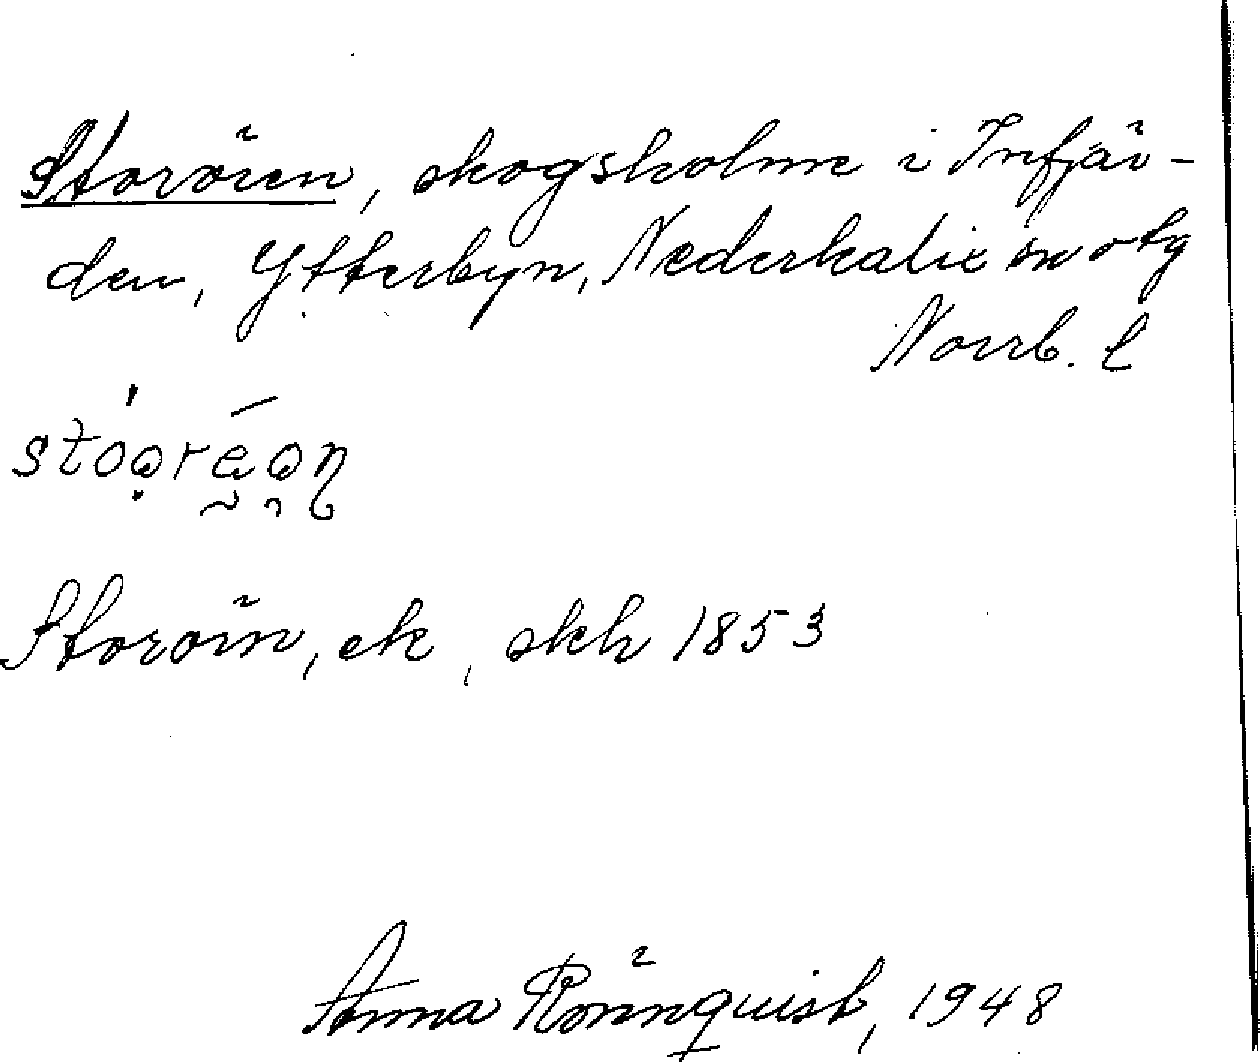 Storören, skogsholme i Infjär-
den, Ytterbyn, Nederkalix sn o tg
Norrb. l
Storörn, ek, skh 1853
Anna Rönnquist, 1948